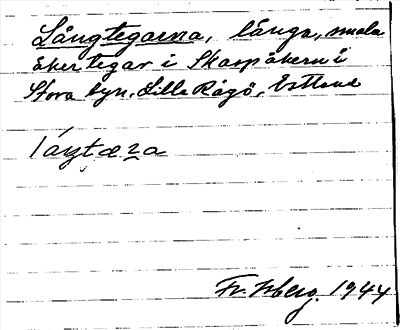 Långtegarna, långa, smala
åkertegar i Skarpåkern i
Stora byn, Lilla Rågö, Estland
Fr. Isberg. 1944